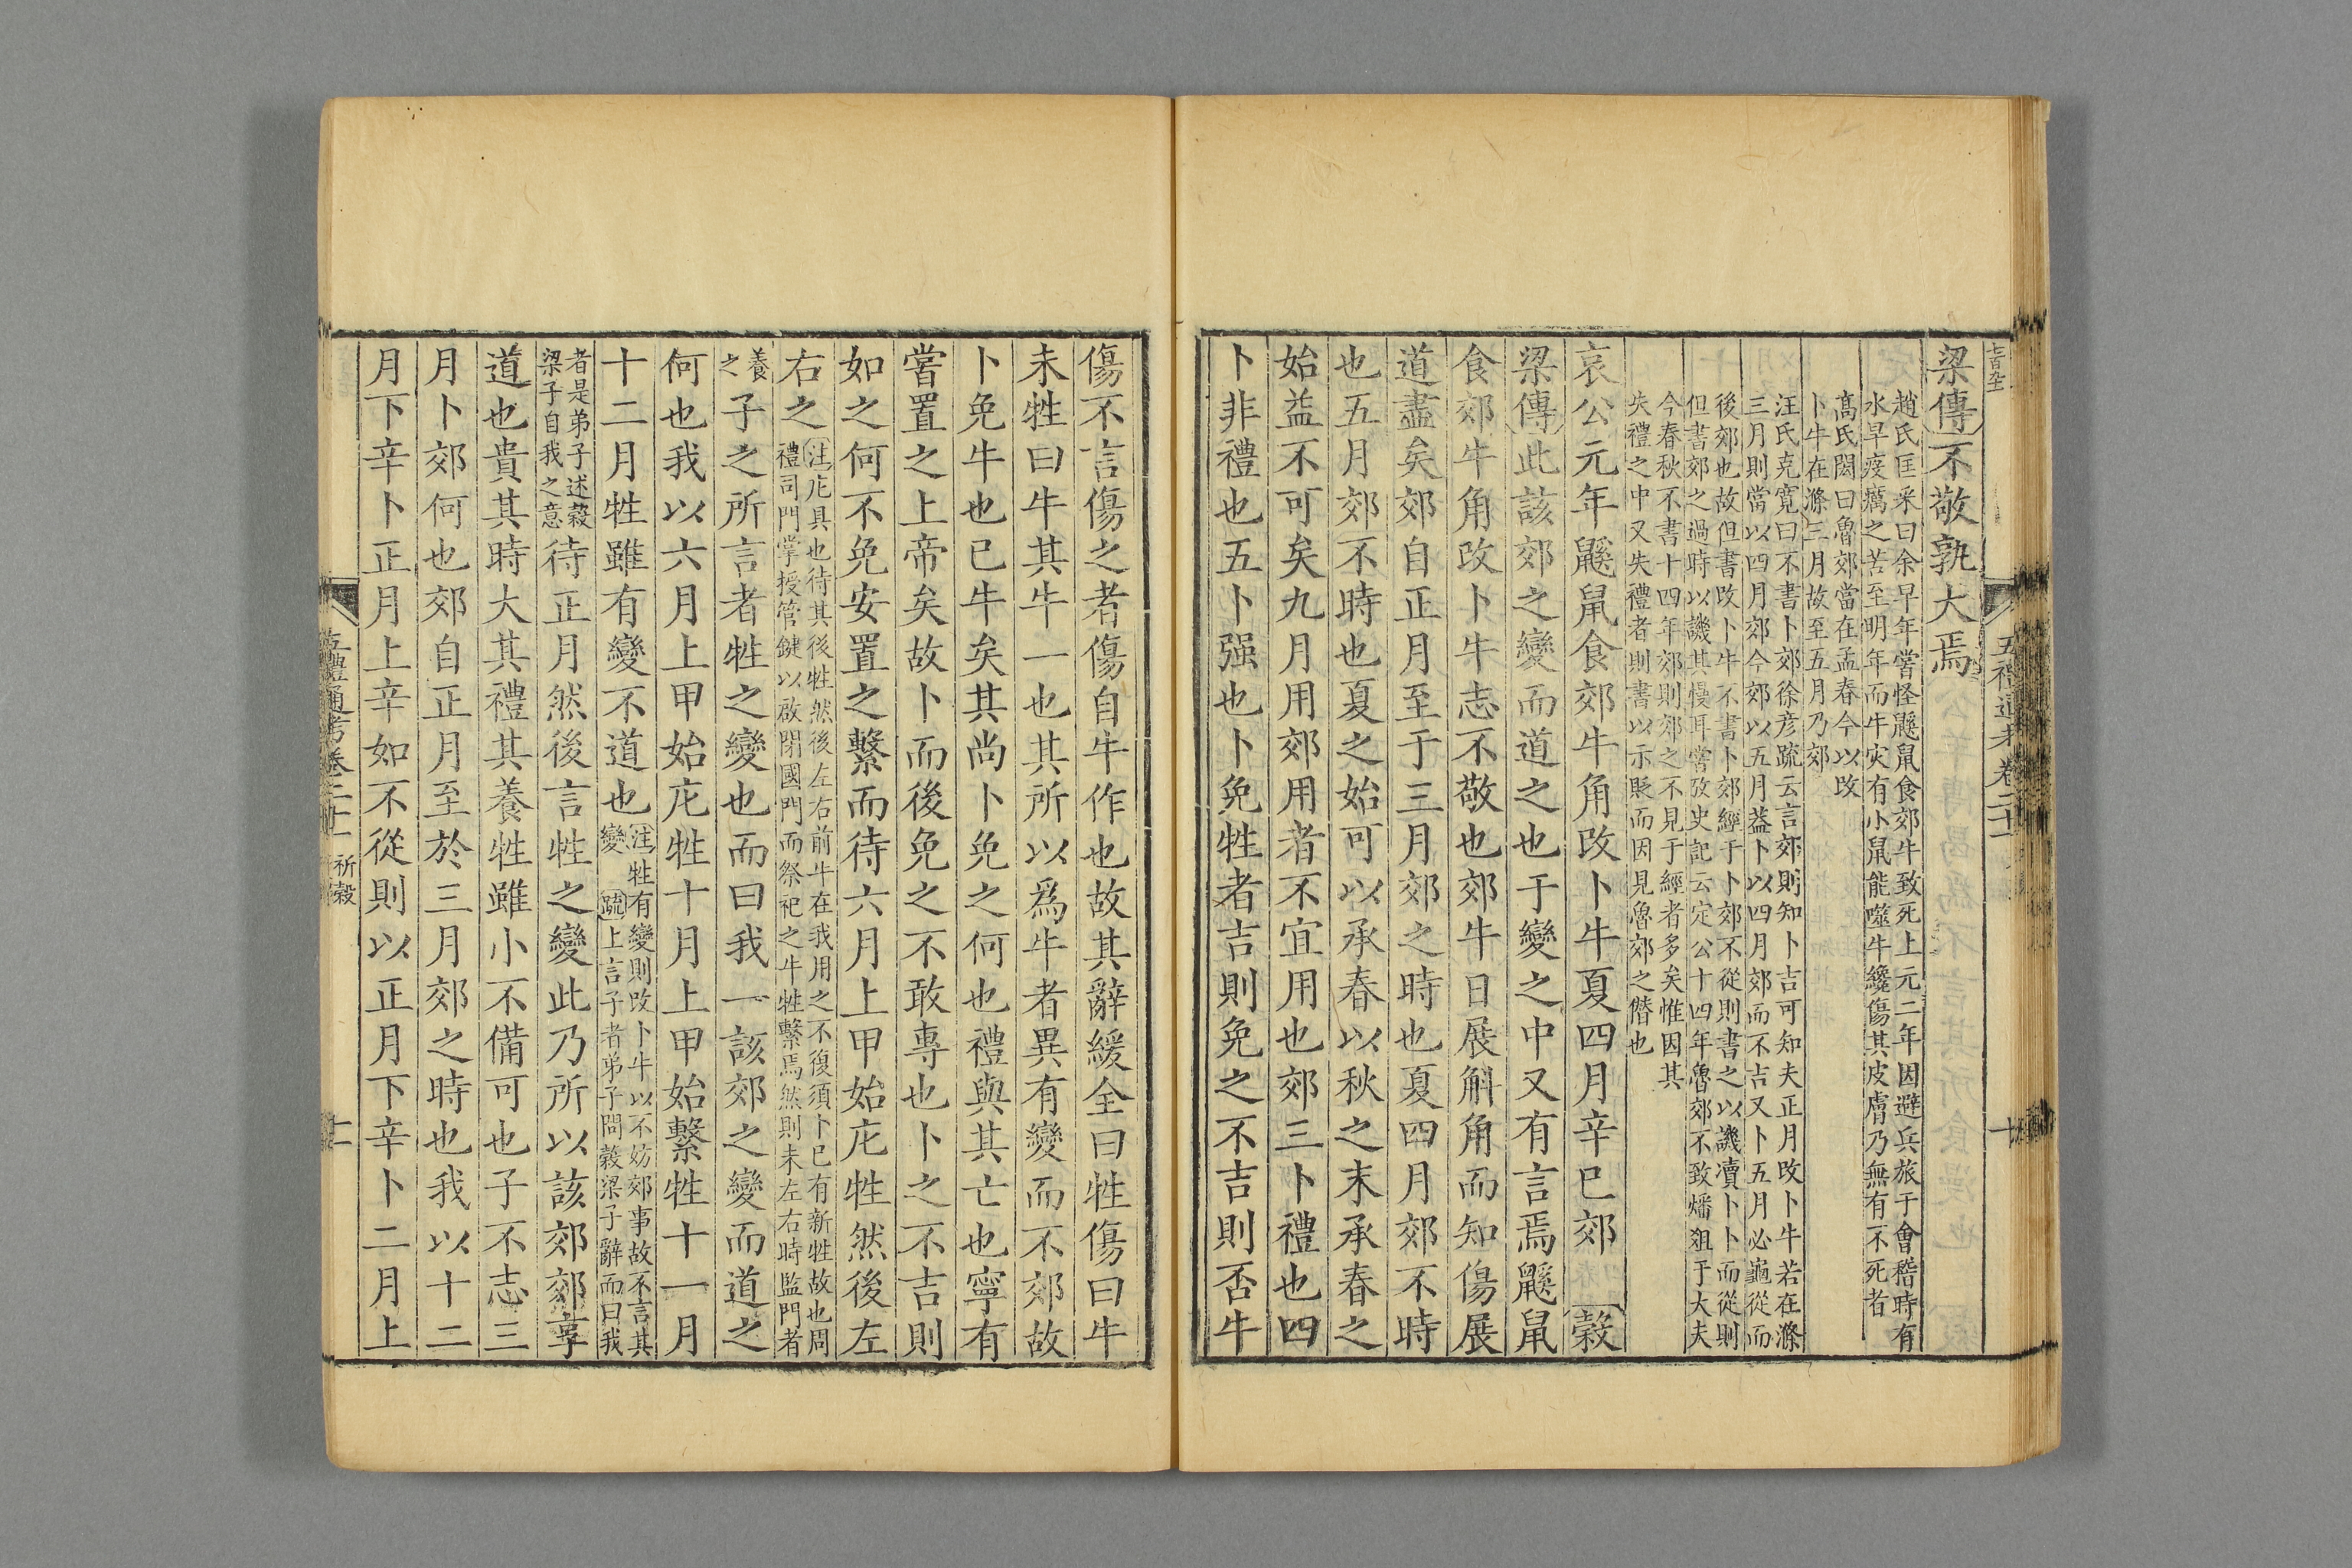 梁傳不敬孰大焉
趙氏匡采曰余早年嘗怪鼷鼠食郊牛致死上元二年因避兵旅于會稽時有
水旱疫癘之苦至明年而牛灾有小鼠能噬牛纔傷其皮膚乃無有不死者
高氏閌曰魯郊當在孟春今以攺
卜牛在滌三月故至五月乃郊
汪氏克寬曰不書卜郊徐彦疏云言郊則知卜吉可知夫正月攺卜牛若在滌
三月則當以四月郊今郊以五月葢卜以四月郊而不吉又卜五月必龜從而
後郊也故但書攺卜牛不書卜郊經于卜郊不從則書之以譏凟卜卜而從則
但書郊之過時以譏其慢耳嘗攷史記云定公十四年魯郊不致燔俎于大夫
今春秋不書十四年郊則郊之不見于經者多矣惟因其
失禮之中又失禮者則書以示貶而因見魯郊之僭也
哀公元年鼷鼠食郊牛角攺卜牛夏四月辛巳郊 穀
梁傳此該郊之變而道之也于變之中又有言焉鼷鼠
食郊牛角攺卜牛志不敬也郊牛日展斛角而知傷展
道盡矣郊自正月至于三月郊之時也夏四月郊不時
也五月郊不時也夏之始可以承春以秋之末承春之
始葢不可矣九月用郊用者不宜用也郊三卜禮也四
卜非禮也五卜强也卜免牲者吉則免之不吉則否牛
傷不言傷之者傷自牛作也故其辭緩全曰牲傷曰牛
未牲曰牛其牛一也其所以爲牛者異有變而不郊故
卜免牛也已牛矣其尚卜免之何也禮與其亡也寧有
嘗置之上帝矣故卜而後免之不敢專也卜之不吉則
如之何不免安置之繫而待六月上甲始庀牲然後左
右之
注庀具也待其後牲然後左右前牛在我用之不復須卜已有新牲故也周
禮司門掌授管鍵以啟閉國門而祭祀之牛牲繫焉然則未左右時監門者
養
之
子之所言者牲之變也而曰我一該郊之變而道之
何也我以六月上甲始庀牲十月上甲始繫牲十一月
十二月牲雖有變不道也
注牲有變則攺卜牛以不妨郊事故不言其
變 疏上言子者弟子問穀梁子辭而曰我
者是弟子述穀
梁子自我之意
待正月然後言牲之變此乃所以該郊郊享
道也貴其時大其禮其養牲雖小不備可也子不志三
月卜郊何也郊自正月至於三月郊之時也我以十二
月下辛卜正月上辛如不從則以正月下辛卜二月上
五禮通考卷二十一 祈穀
十一